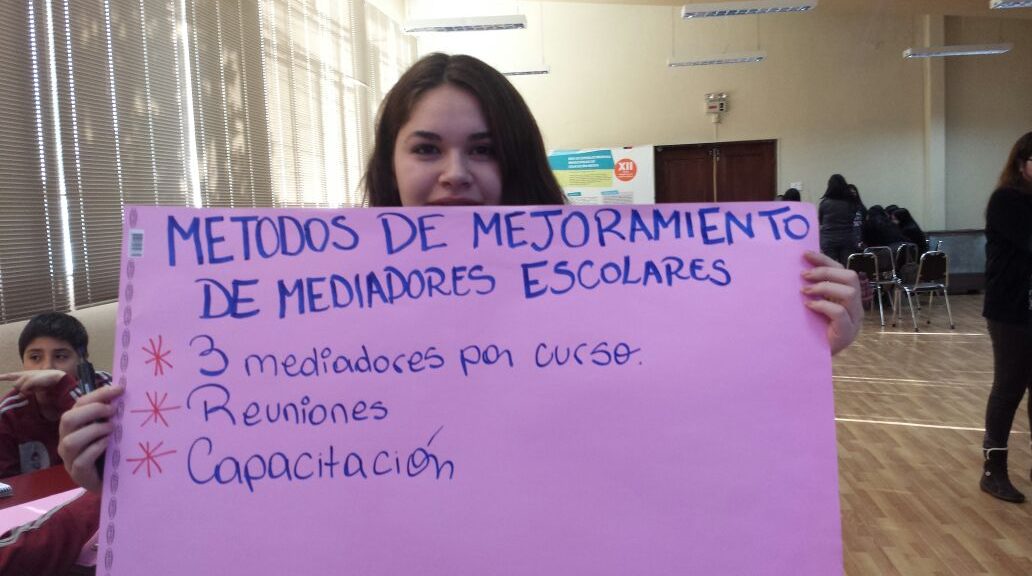 METODOS DE MEJORAMIENTO
DE MEDIADORES ESCOLARES
* 3 mediadores por curso.
* Reuniones
* Capacitación
XII